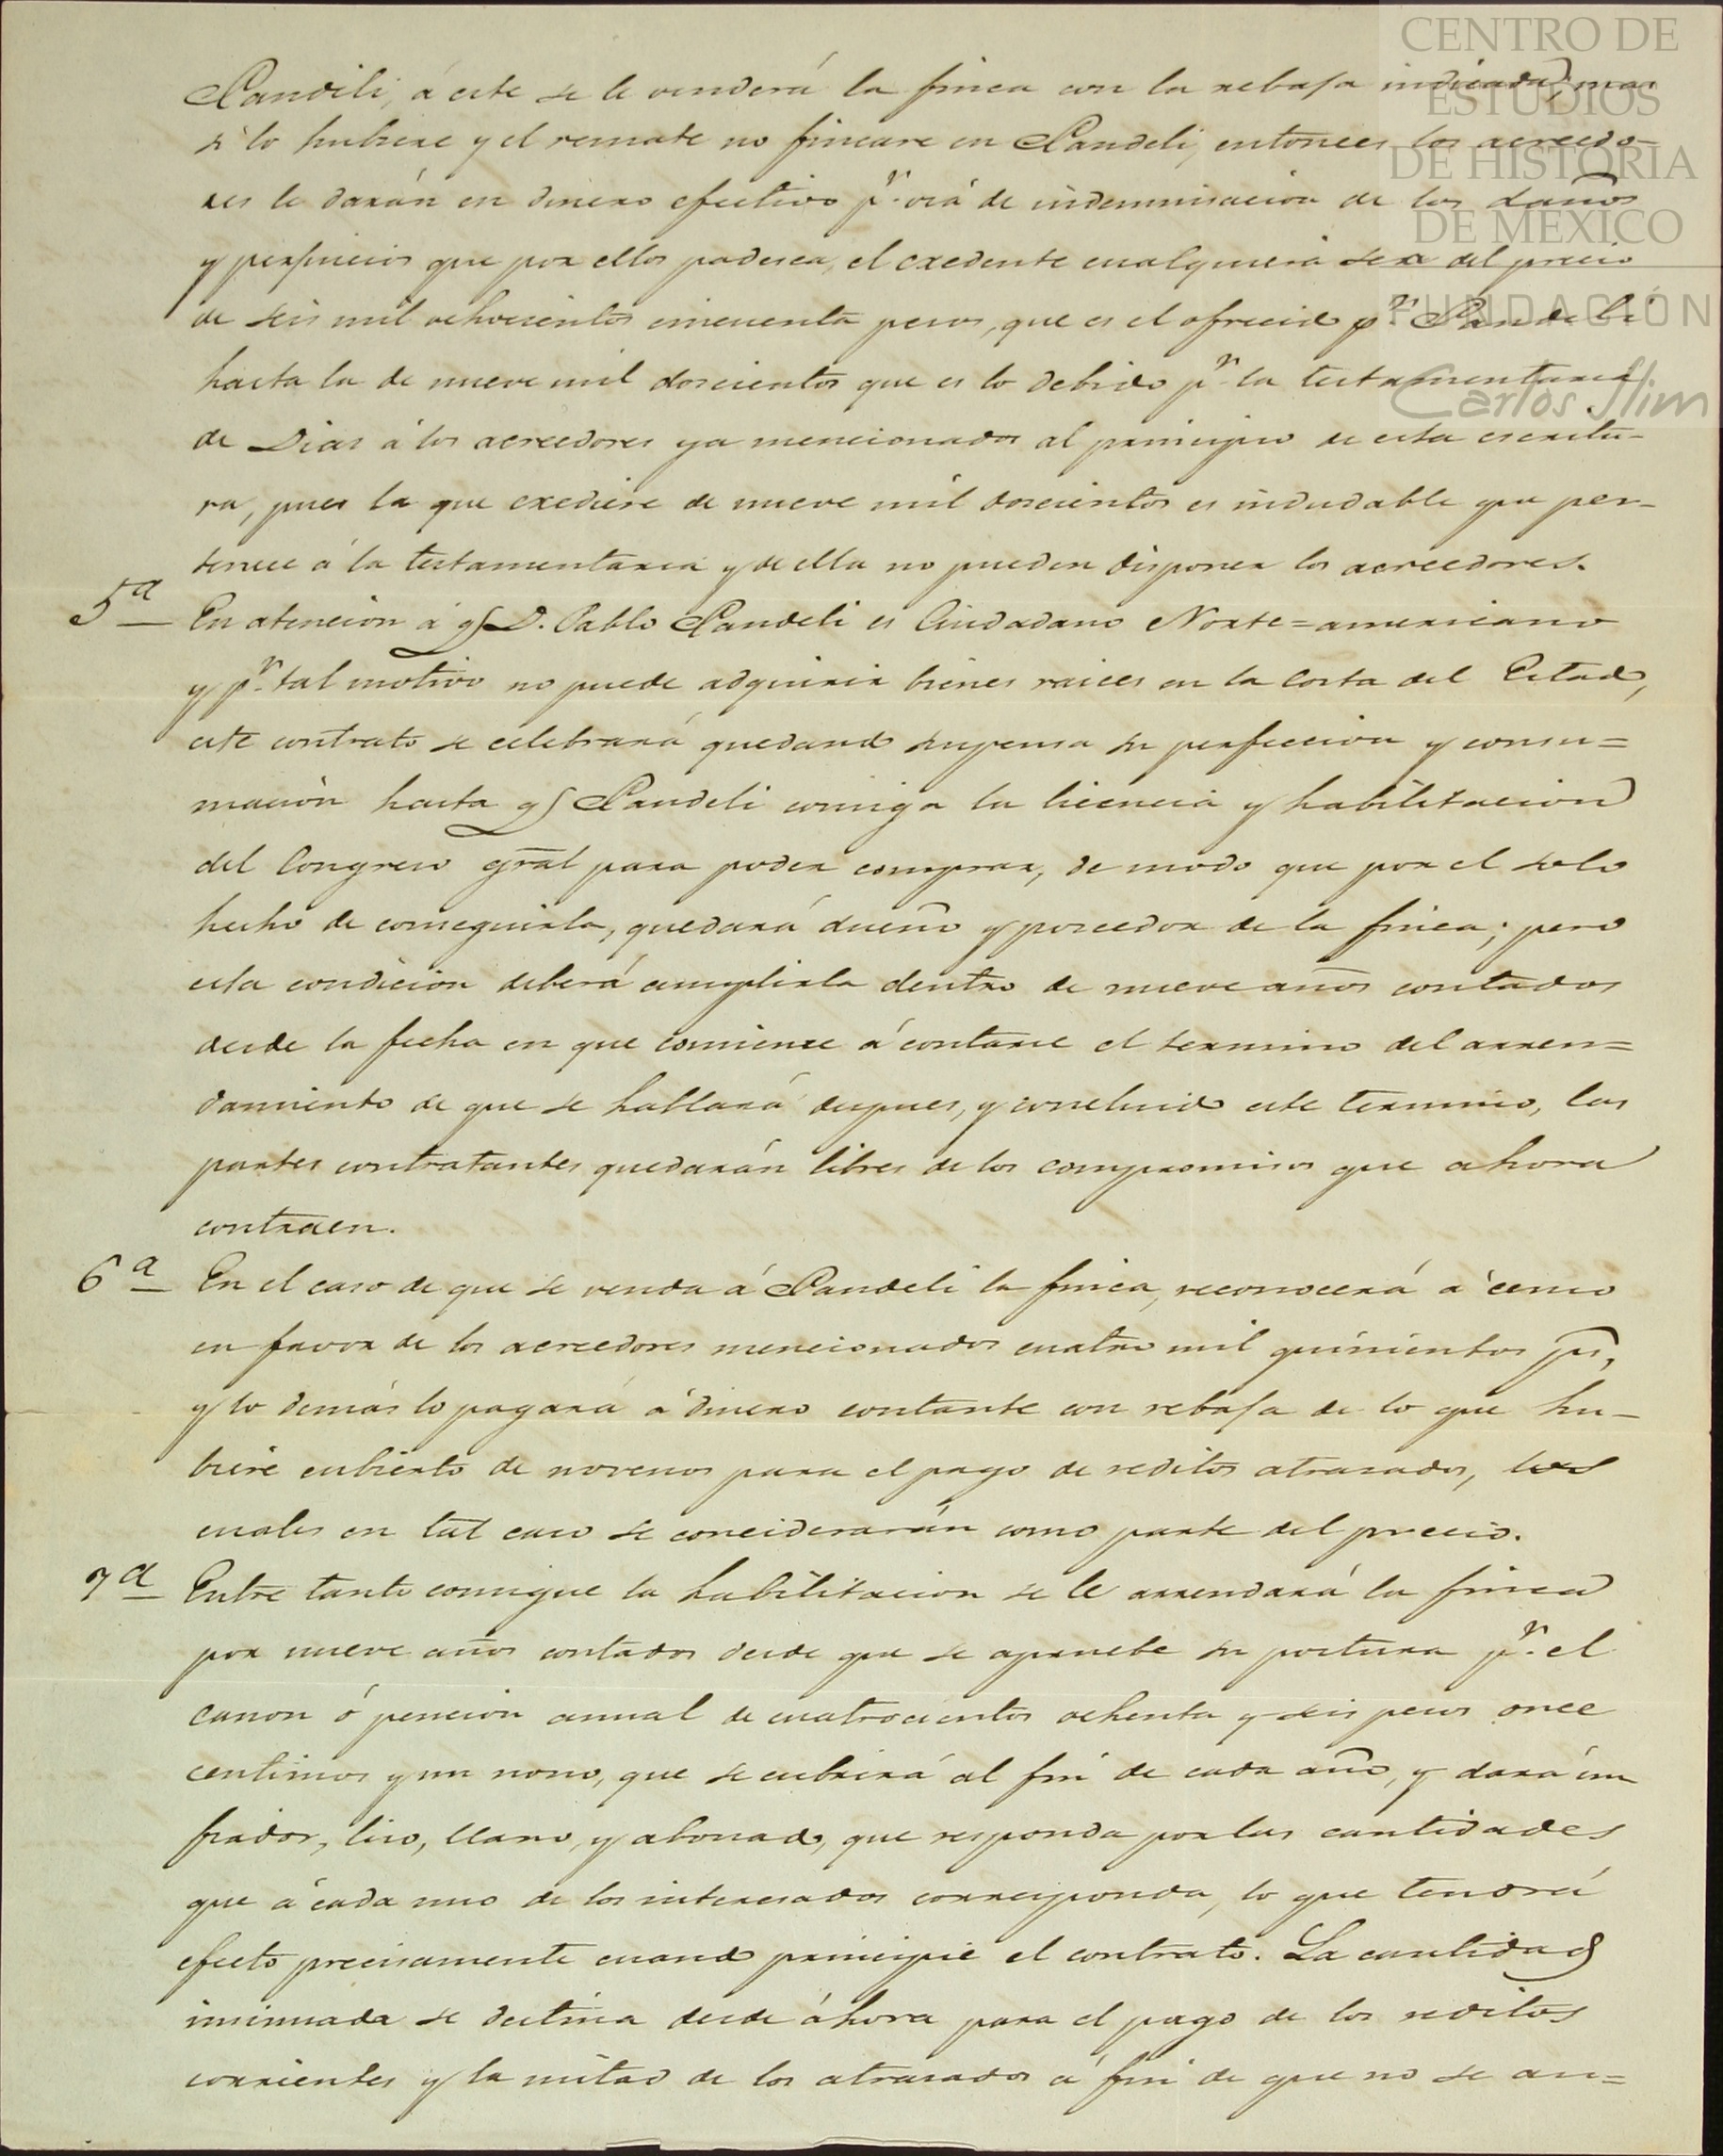 CENTRO DE
ESTUDIOS
DE HISTORIA
DE MÉXICO
FUNDACIÓN
Carlos Slim
Pandeli, á este se le venderá la finca con la rebafa indicada; mas
si lo hubiere y el remate no fincare en Pandeli, entonces los acreedo-
res le darán en dinero efectivo pr. viá de indemnisacion de los daños
y perfuicios que por ellos padesca, el exedente cualquiera sea del precio
de seis mil ochocientos cincuenta pesos, que es el ofrecido pr. Pandeli
hasta la de nueve mil doscientos que es lo debido pr. la testamentaria
de Dias á los acreedores ya mencionados al principio de esta escritu-
ra, pues la que exediere de nueve mil doscientos es indudable que per-
tenece á la testamentaria y de ella no pueden disponer los acreedores.
5a En atencion á q D. Pablo Pandeli es Ciudadano Norte=americano
y pr. tal motivo no puede adquirir bienes raices en la Costa del Estado,
este contrato se celebrará quedando supensa su perfeccion y consu=
macion hasta q Pandeli consiga la licencia y habilitacion
del Congreso gral para poder comprar, de modo que por el solo
hecho de conseguirla, quedará dueño y poseedor de la finca; pero
esta condicion deberá cumplirla dentro de nueve años contados
desde la fecha en que comience á contarse el termino del arren=
damiento de que se hablará despues, y concluido este termino, las
partes contratantes quedarán libres de los compromisos que ahora
contraen.
6a En el caso de que se venda á Pandeli la finca, reconocerá á censo
en favor de los acreedores mencionados cuatro mil quinientos ps,
y lo demás lo pagará á dinero contante con rebafa de lo que hu-
biere cubierto de novenos para el pago de reditos atrasados, los
cuales en tal caso se concidererán como parte del precio.
7a Entre tanto consigue la habilitacion se le arrendará la finca
por nueve años contados desde que se apruebe su postura pr. el
canon ó pencion annal de cuatrocientos ochenta y seis pesos once
centimos y un nono, que se cubrirá al fin de cada año, y dará un
fiador, liso, llano, y abonado, que responda por las cantidades
que á cada uno de los interesados corresponda, lo que tendrá
efecto precisamente cuando principie el contrato. La cantidad
insinuada se destina desde áhora para el pago de los reditos
corrientes y la mitad de los atrasados á fin de que no se au=